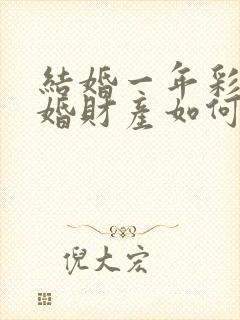 結婚一年彩
婚財產如何
倪大宏